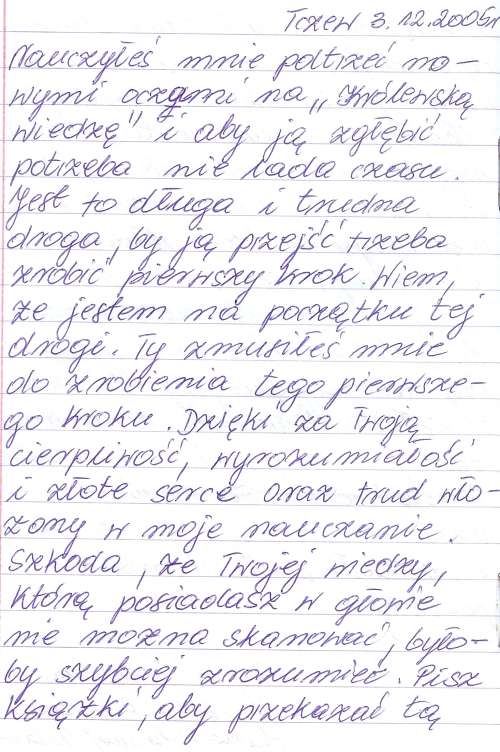 Tczew 3.12.2005r
Nauczyłeś mnie patrzeć no-
wymi oczami na „Królewską
wiedzę" i aby ją zgłębić
potrzeba nie lada czasu.
Jest to długa i trudna
droga, by ją przejść trzeba
zrobić pierwszy krok. Wiem,
że jestem na początku tej
drogi. Ty zmusiłeś mnie
do zrobienia tego pierwsze-
go kroku. Dzięki za Twoją
cierpliwość, wyrozumiałość
i złote serce oraz trud wło-
żony w moje nauczanie.
Szkoda, że Twojej wiedzy,
którą posiadasz w głowie
nie można skanować, było-
by szybciej zrozumieć. Pisz
książki, aby przekazać tą